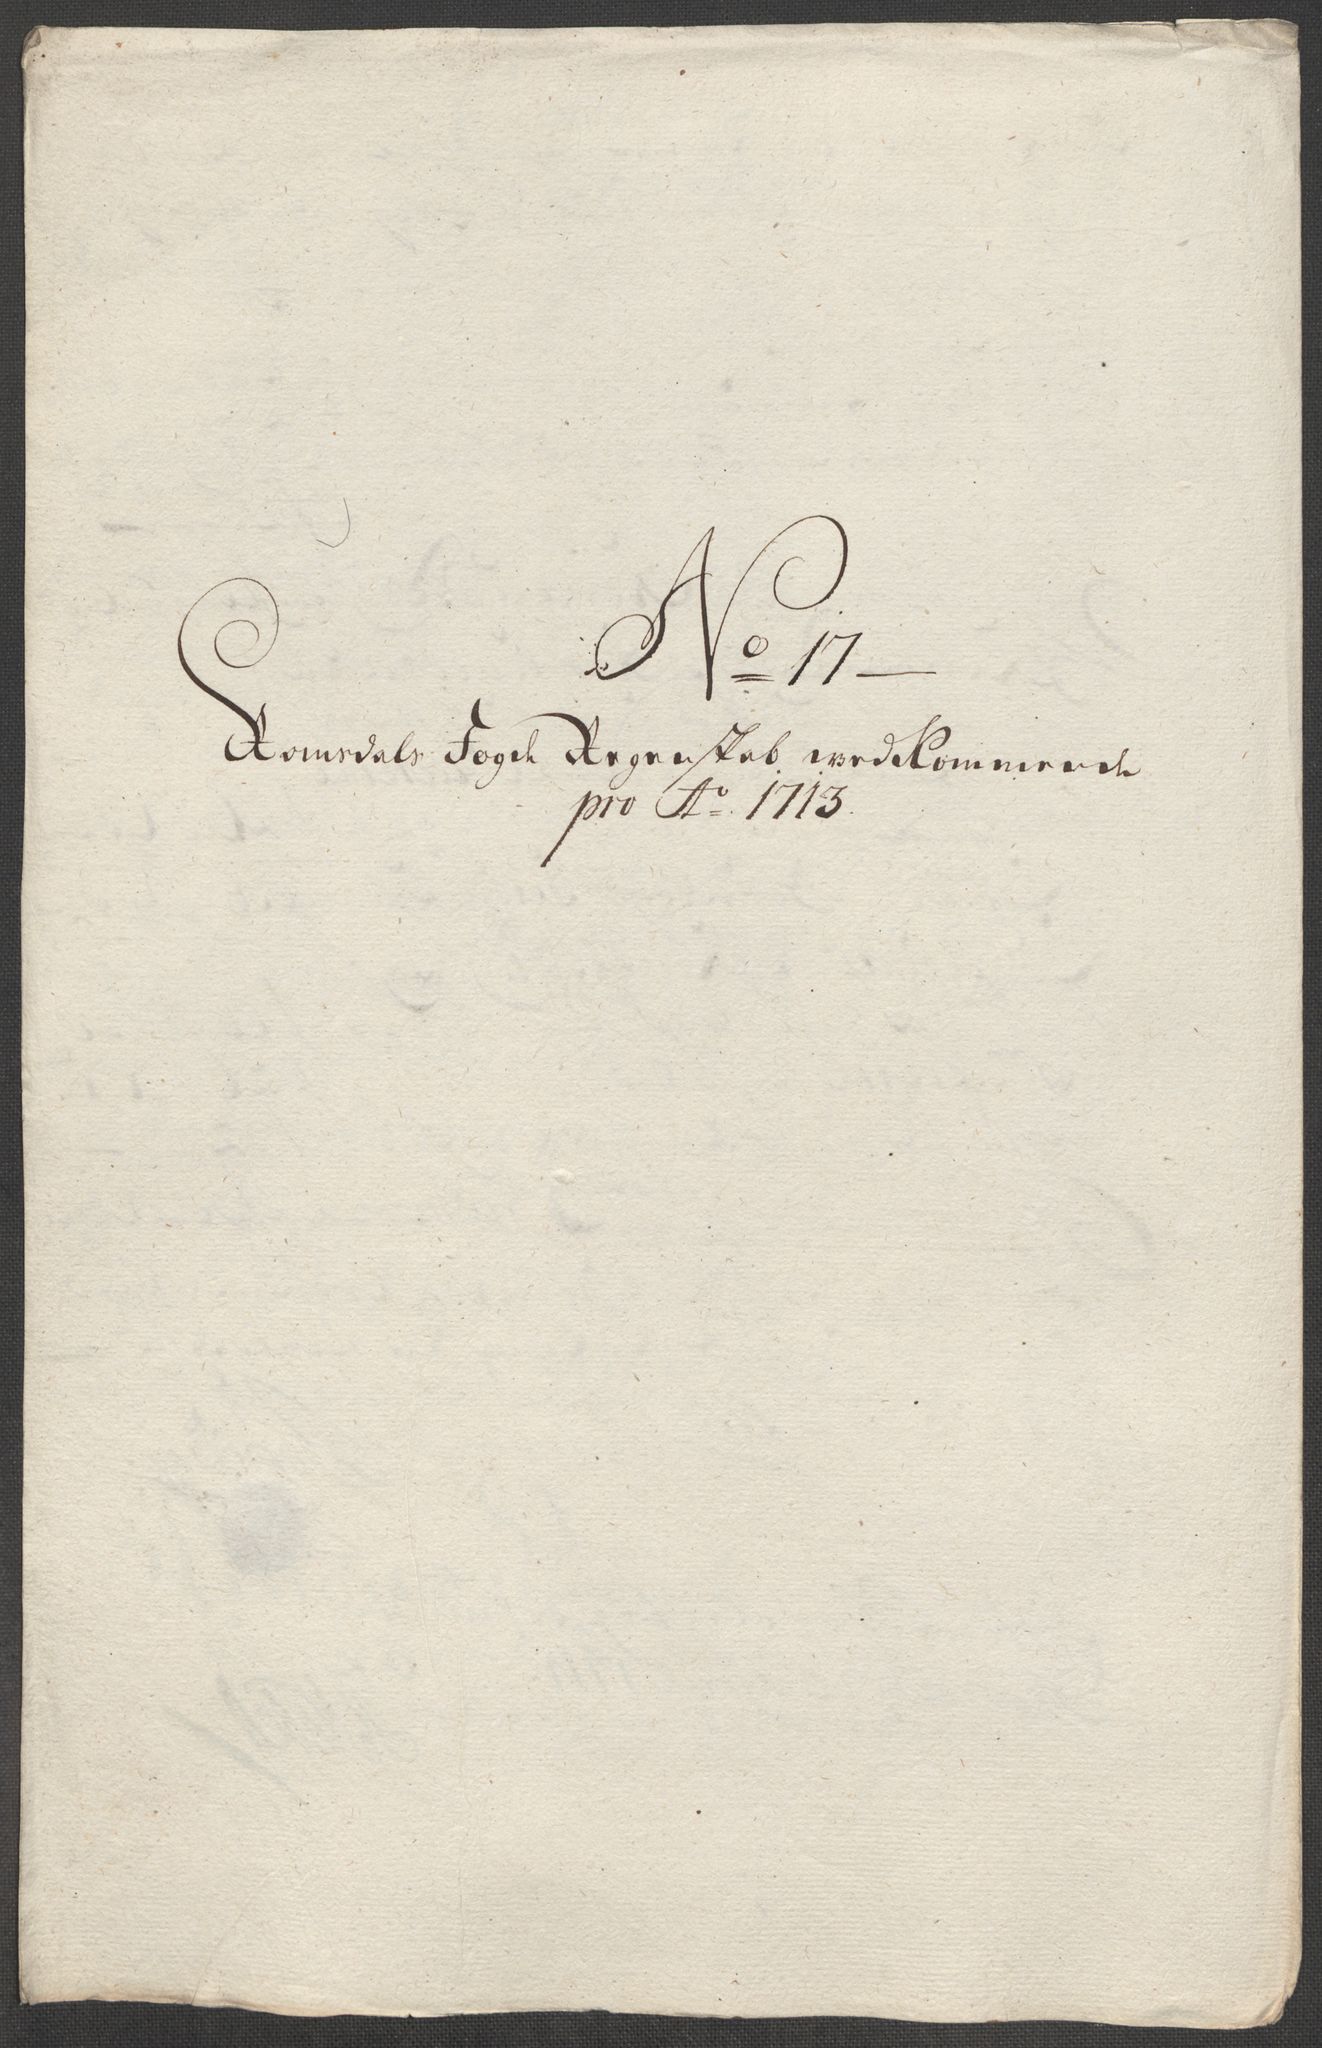 No 17 —
Romsdals Fogde Regenskab wedkommende
pro Ao. 1713.